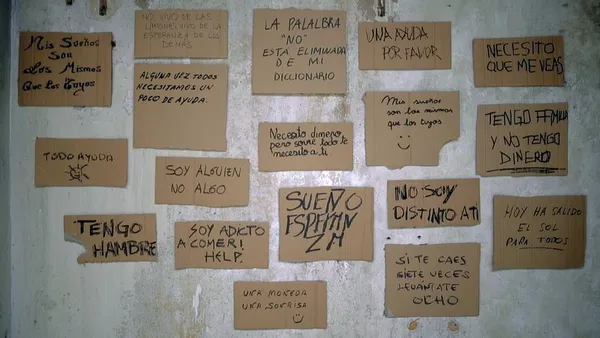 Mis Sueños
Son
Los Mismos
Que Los Tuyos
NO VIVO DE LAS
LIMOSNAS, VIVO DE LA
ESPERANZA DE LOS
DEMÁS
LA PALALBRA
"NO"
ESTA ELIMINADA
DE MI
DICCIONARIO
UNA AYUDA
POR FAVOR
NECESITO
QUE ME VEAS
ALGUNA VEZ TODOS
NECESITAMOS UN
POCO DE AYUDA.
Mis sueños
son los mismos
que los tuyos
TENGO FAMILIA
Y NO TENGO
DINERO
TODO AYUDA
SOY ALGUIEN
NO ALGO
Necesito dinero,
pero sobre todo te
necesito a ti
SUEÑO
ESPERAN
ZA
NO SOY
DISTINTO A TI
HOY HA SALIDO
EL SOL
PARA TODOS
TENGO
HAMBRE
SOY ADICTO
A COMER!
HELP.
SI TE CAES
SIETE VECES
LEVÁNTATE
OCHO
UNA MONEDA
UNA SONRISA